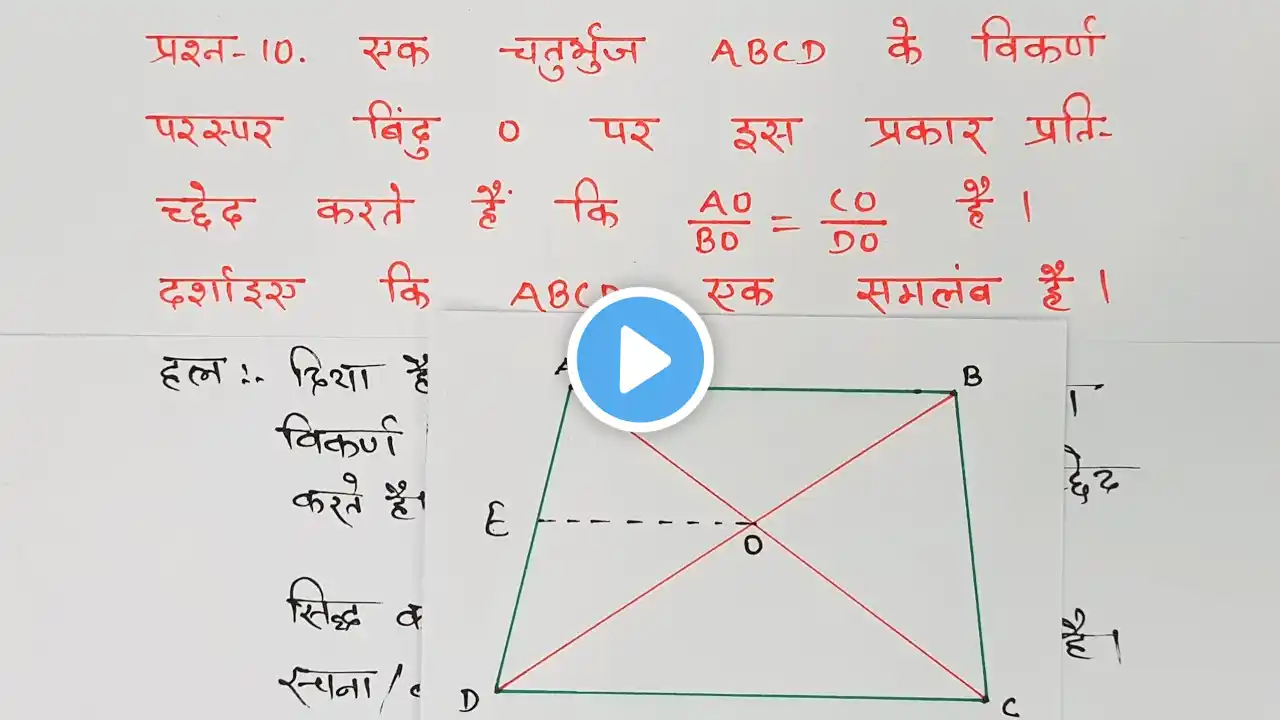 प्रश्न-10. एक चतुर्भुज ABCD के विकर्ण
परस्पर बिंदु O पर इस प्रकार प्रति-
च्छेद करते हैं कि AO/BO = CO/DO है।
दर्शाइए कि ABCD एक समलंब है।
हल :- दिया है
विकर्ण
करते है।
सिद्ध
है।
रचना/
A
B
E
O
D
C